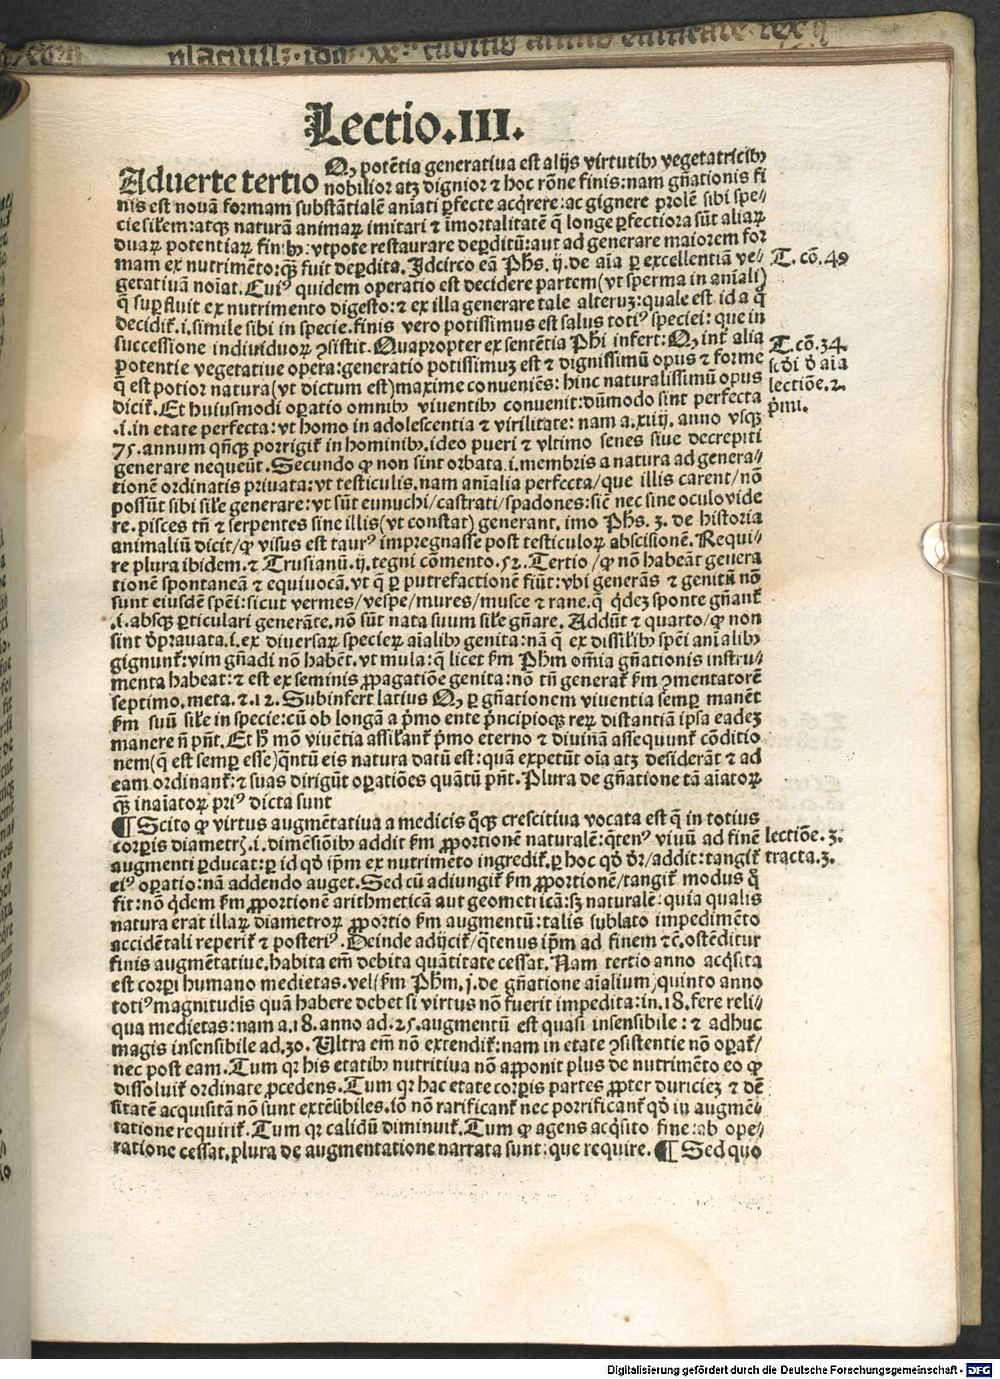 Lectio.III.
Aduerte tertio Q, potētia generatiua est alijs virtutibꝫ vegetatricibꝫ
nobilior atqꝫ dignior ⁊ hoc rōne finis:nam gn̄ationis fi
nis est nouā formam substātialē aniati ꝑfecte acq̄rere:ac gignere prolē sibi spe⸗
cie silem:atqꝫ naturā animaꝝ imitari ⁊ īmortalitatē q̄ longe ꝑfectiora sūt aliaꝝ
duaꝝ potentiaꝝ finibꝫ:vtpote restaurare deꝑditū:aut ad generare maiorem for
mam ex nutrimēto:qꝫ fuit deꝑdita.Idcirco eā Phs.ij.de aīa ꝑ excellentiā ve⸗
T.cō.49
getatiuā noīat.Cuiꝰ quidem operatio est decidere partem(vt sperma in aīali)
q̄ suꝑfluit ex nutrimento digesto:⁊ ex illa generare tale alteruꝫ:quale est id a q̄
decidit̄.i.simile sibi in specie.finis vero potissimus est salus totiꝰ speciei:que in
successione indiuiduoꝝ ꝯsistit.Quapropter ex sentētia Phi infert:Q, int̄ alia
T.cō.34.
potentie vegetatiue opera:generatio potissimuꝫ est ⁊ dignissimū opus ⁊ forme
scd̄i d̄ aīa
q̄ est potior natura(vt dictum est)maxime conueniēs:hinc naturalissimū opus
lectiōe.2.
dicit̄.Et huiusmodi oꝑatio omnibꝫ viuentibꝫ conuenit:dūmodo sint perfecta
p̄mi.
.i.in etate perfecta:vt homo in adolescentia ⁊ virilitate:nam a.xiiij.anno vsqꝫ
75.annum qn̄qꝫ porrigit̄ in hominibꝫ.ideo pueri ⁊ vltimo senes siue decrepiti
generare nequeūt.Secundo ꝙ non sint orbata.i.membris a natura ad genera⸗
tionē ordinatis priuata:vt testiculis.nam anīalia perfecta/que illis carent/nō
possūt sibi sile generare:vt sūt eunuchi/castrati/spadones:sic̄ nec sine oculo vide
re.pisces tn̄ ⁊ serpentes sine illis(vt constat)generant.imo Phs.3.de historia
animaliū dicit/ꝙ visus est taurꝰ impregnasse post testiculoꝝ abscisionē.Requi⸗
re plura ibidem.⁊ Trusianū.ij.tegni cōmento.52.Tertio/ꝙ nō habeāt genera
tionē spontaneā ⁊ equiuocā.vt q̄ ꝑ putrefactionē fiūt:vbi generās ⁊ genitū nō
sunt eiusdē spēi:sicut vermes/vespe/mures/musce ⁊ rane.q̄ q̄dē sponte gn̄ant̄
.i.absqꝫ ꝑticulari generāte.nō sūt nata suum sile gn̄are.Addūt ⁊ quarto/ꝙ non
sint dp̄rauata.i.ex diuersaꝝ specieꝝ aīalibꝫ genita:nā q̄ ex dissilibꝫ spēi anīalibꝫ
gignunt̄:vim gn̄adi nō habēt.vt mula:q̄ licet ẜm Phm om̄ia gn̄ationis instru⸗
menta habeat:⁊ est ex seminis ꝓpagatiōe genita:nō tn̄ generat̄ ẜm ꝯmentatorē
septimo.meta.⁊.12.Subinfert latius Q, ꝑ gn̄ationem viuentia semꝑ manēt
ẜm suū sile in specie:cū ob longā a p̄mo ente p̄ncipioqꝫ reꝝ distantiā ipsa eadeꝫ
manere n̄ pn̄t.Et h̄ mō viuētia assilant̄ p̄mo eterno ⁊ diuinā assequunt̄ cōditio
nem(q̄ est semꝑ esse)q̄ntū eis natura datū est:quā expetūt oīa atqꝫ desiderāt ⁊ ad
eam ordinant̄:⁊ suas dirigūt oꝑatiōes quātū pn̄t.Plura de gn̄atione tā aīatoꝝ
qꝫ inaīatoꝝ priꝰ dicta sunt
¶ Scito ꝙ virtus augmētatiua a medicis q̄qꝫ crescitiua vocata est q̄ in totius
corꝑis diametrꝭ.i.dimēsiōibꝫ addit ẜm ꝓportionē naturalē:q̄tenꝰ viuū ad finē
lectiōe.3.
augmenti ꝑducat:ꝑ id qd̄ ip̄m ex nutrimēto ingredit̄.ꝑ hoc qd̄ dr̄/addit:tangit̄
tracta.3.
eiꝰ oꝑatio:nā addendo auget.Sed cū adiungit̄ ẜm ꝓportionē/tangit̄ modus q̄
fit:nō q̄dem ẜm ꝓportionē arithmeticā aut geometricā:sꝫ naturalē:quia qualis
natura erat illaꝝ diametroꝝ ꝓportio ẜm augmentū:talis sublato impedimēto
accidētali reperit̄ ⁊ posteriꝰ.Deinde adijcit̄/q̄tenus ip̄m ad finem ⁊c̄.ostēditur
finis augmētatiue.habita em̄ debita quātitate cessat.Nam tertio anno acq̄sita
est corꝑi humano medietas.vel(ẜm Phm.j.de gn̄atione aīalium)quinto anno
totiꝰ magnitudis quā habere debet si virtus nō fuerit impedita:in.18.fere reli⸗
qua medietas:nam a.18.anno ad.25.augmentū est quasi insensibile:⁊ adhuc
magis insensibile ad.30.Ultra em̄ nō extendit̄:nam in etate ꝯsistentie nō oꝑat̄/
nec post eam.Tum qꝛ his etatibꝫ nutritiua nō apponit plus de nutrimēto eo ꝙ
dissoluit̄ ordinate ꝓcedens.Tum qꝛ hac etate corꝑis partes ꝓpter duricieꝫ ⁊ dē
sitatē acquisitā nō sunt extēsibiles.iō nō rarificant̄ nec porrificant̄ qd̄ in augmē⸗
tatione requirit̄.Tum qꝛ calidū diminuit̄.Tum ꝙ agens acq̄sito fine:ab ope⸗
ratione cessat.plura de augmentatione narrata sunt:que require.¶ Sed quo
Digitalisierung gefördert durch die Deutsche Forschungsgemeinschaft - DFG